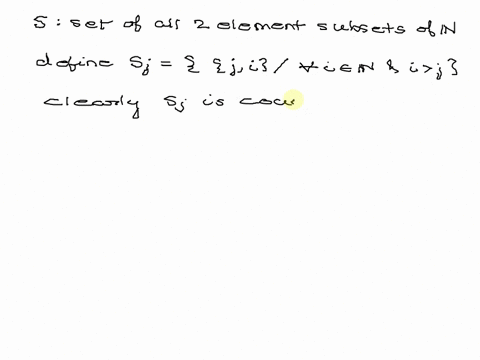 S : set of all 2 element subsets of ℕ
define Sj = { {j,i} / ∀ i ∈ ℕ & i>j }
clearly Sj is cou